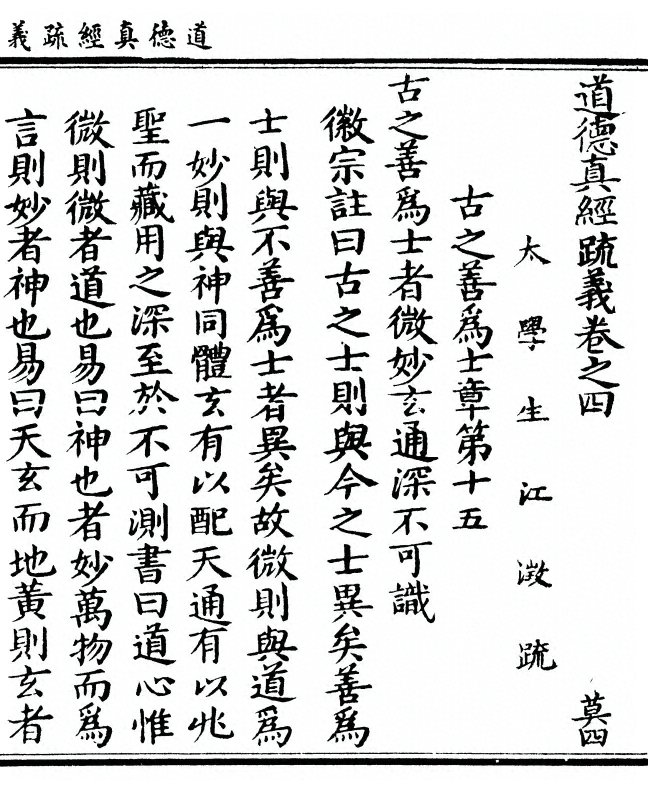 道德真經疏義
道德真經疏義卷之四 莫四
太學生江澂疏
古之善爲士章第十五
古之善爲士者微妙玄通深不可識
徽宗註曰古之士則與今之士異矣善爲
士則與不善爲士者異矣故微則與道爲
一妙則與神同體玄有以配天通有以兆
聖而藏用之深至於不可測書曰道心惟
微則微者道也易曰神也者妙萬物而爲
言則妙者神也易曰天玄而地黃則玄者